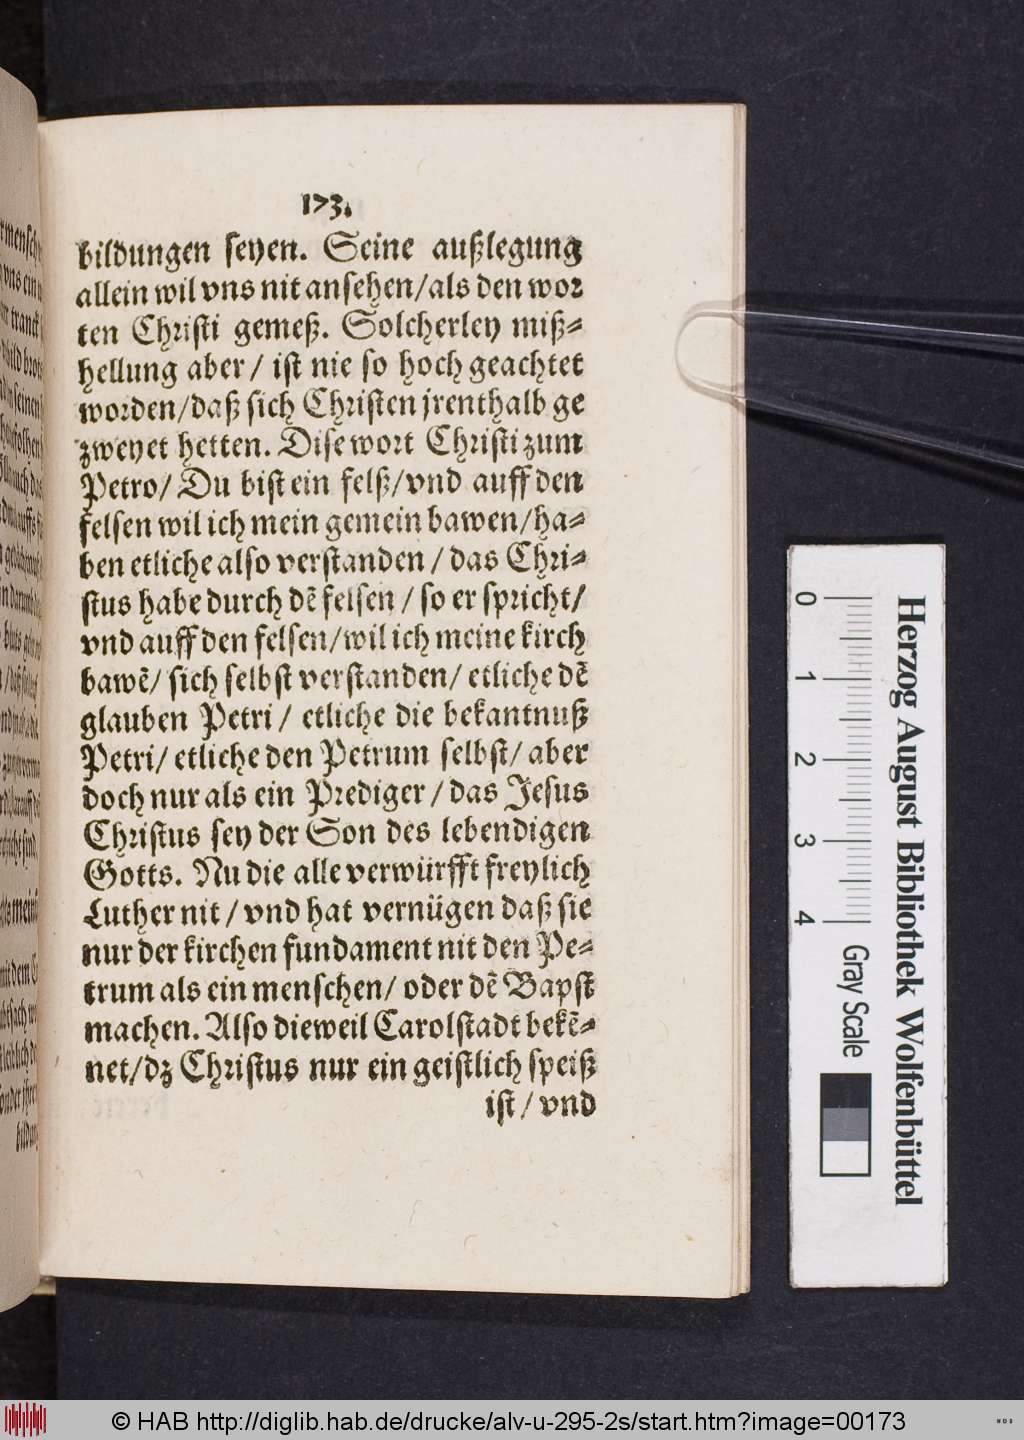 173.
bildungen seyen. Seine außlegung
allein wil vns nit ansehen/als den wor
ten Christi gemeß. Solcherley miß-
hellung aber/ ist nie so hoch geachtet
worden/daß sich Christen jrenthalb ge
zweyet hetten. Dise wort Christi zum
Petro/ Du bist ein felß/vnd auff den
felsen wil ich mein gemein bawen/ha-
ben etliche also verstanden / das Chri-
stus habe durch dẽ felsen / so er spricht/
vnd auff den felsen/wil ich meine kirch
bawẽ/ sich selbst verstanden/ etliche dẽ
glauben Petri/ etliche die bekantnuß
Petri/ etliche den Petrum selbst/ aber
doch nur als ein Prediger / das Jesus
Christus sey der Son des lebendigen
Gotts. Nu die alle verwürfft freylich
Luther nit / vnd hat vernügen daß sie
nur der kirchen fundament nit den Pe-
trum als ein menschen/ oder dẽ Bapst
machen. Also dieweil Carolstadt bekẽ-
net/dz Christus nur ein geistlich speiß
ist/ vnd
0 1 2 3 4 Gray Scale
Herzog August Bibliothek Wolfenbüttel
© HAB http://diglib.hab.de/drucke/alv-u-295-2s/start.htm?image=00173